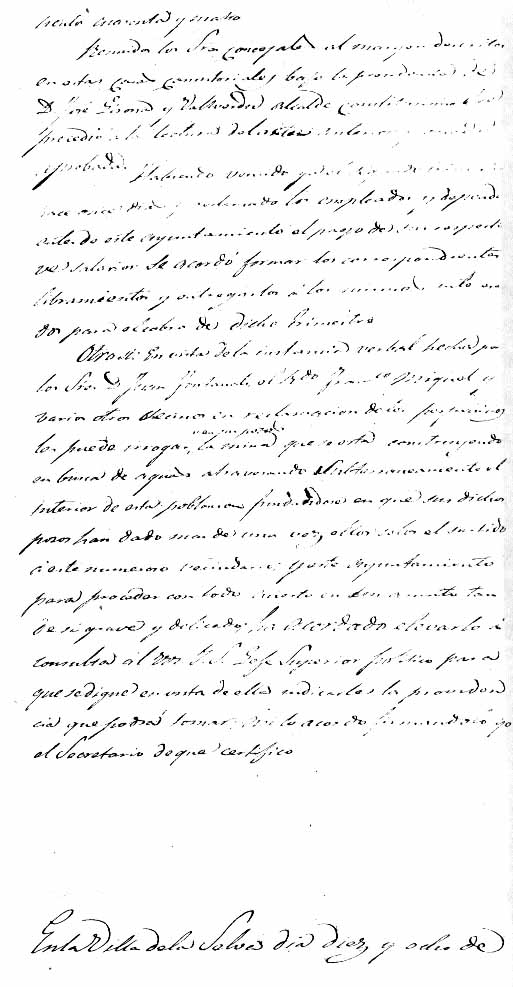 cientos cuarenta y cuatro
Reunidos los Sres concejales al margen descritos
en estas casas consistoriales bajo la presidencia de
D. José Girona y Vallverdu alcalde constitucional se
procedió a la lectura del acta anterior y
aprobada. Habiendo venido
y reclamado los empleados y depend
de este ayuntamiento el pago de sus respecti
vos salarios se acordó formar los correspondientes
libramientos y entregarlos á los mismos
para el cobro de dicho trimestre
Otrosi: En vista de la instancia verbal hecha por
los Sres D. Juan Fontanals, el Rdo Franco Miquel y
varios otros vecinos en reclamacion de los perjuicios
les puede irrogar en sus pozos la mina que se está construyendo
en busca de aguas atravesando subterraneamente el
interior de esta poblacion fundandose en que sus dichos
pozos han dado mas de una vez ellos solos el surtido
á este numeroso vecindario; y este ayuntamiento
para proceder con todo acierto en un asunto tan
de si grave y delicado, ha acordado elevarlo á
consulta al M. I. S. Jefe Superior político para
que se digne en vista de ella indicarles la providen
cia que podrá tomar. Asi lo acordo firmandolo yo
el Secretario de que certifico
En la Villa de la Selva dia diez y ocho de